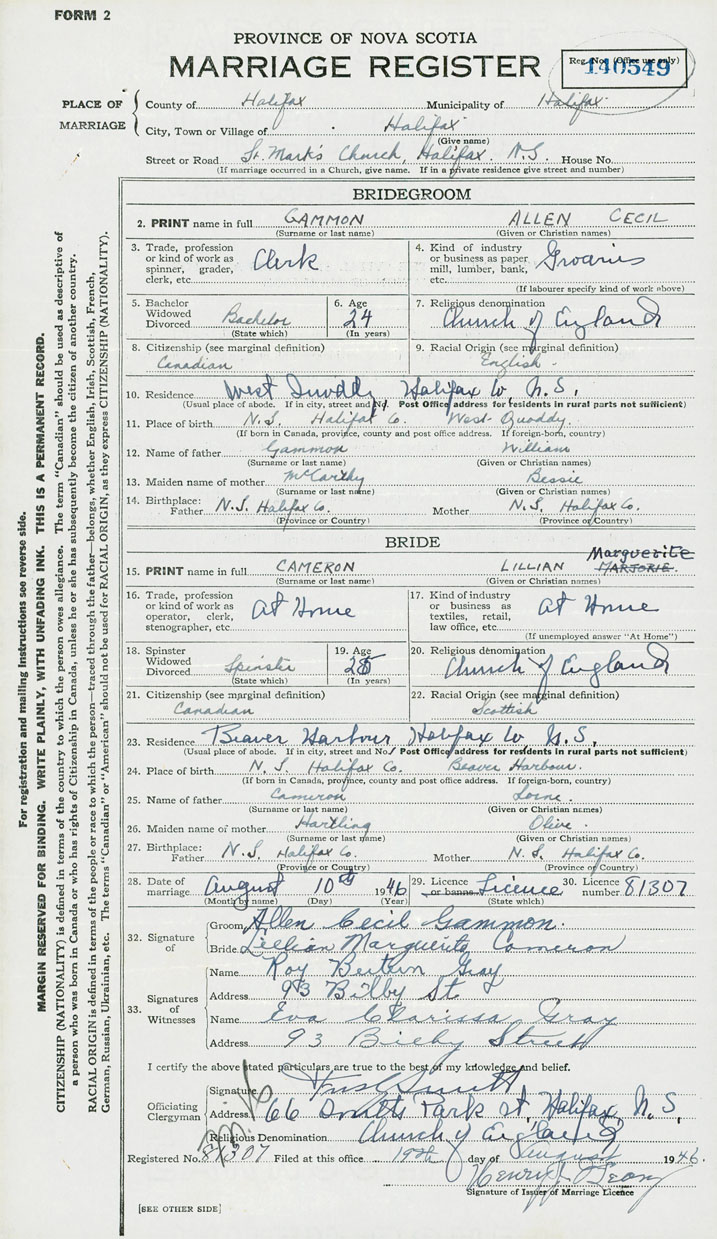 FORM 2
PROVINCE OF NOVA SCOTIA
MARRIAGE REGISTER
Reg. No. (Office use only)
140549
PLACE OF MARRIAGE
County of Halifax Municipality of Halifax
City, Town or Village of Halifax
(Give name)
Street or Road St. Mark's Church, Halifax. N.S. House No.
(If marriage occurred in a Church, give name. If in a private residence give street and number)
BRIDEGROOM
2. PRINT name in full GAMMON ALLEN CECIL
(Surname or last name) (Given or Christian names)
3. Trade, profession or kind of work as spinner, grader, clerk, etc. Clerk
4. Kind of industry or business as paper mill, lumber, bank, etc. Groaries
(If labourer specify kind of work above)
5. Bachelor Widowed Divorced Bachelor
(State which)
6. Age 24
(In years)
7. Religious denomination
Church of England
8. Citizenship (see marginal definition)
Canadian
9. Racial Origin (see marginal definition)
English.
10. Residence West Quoddy Halifax Co N.S.
(Usual place of abode. If in city, street and No. Post Office address for residents in rural parts not sufficient)
11. Place of birth N.S. Halifax Co. West Quoddy.
(If born in Canada, province, county and post office address. If foreign-born, country)
12. Name of father Gammon William
(Surname or last name) (Given or Christian names)
13. Maiden name of mother McCarthy Bessie
(Surname or last name) (Given or Christian names)
14. Birthplace: Father N.S. Halifax Co. Mother N.S. Halifax Co.
(Province or Country) (Province or Country)
BRIDE
Marguerite
15. PRINT name in full CAMERON LILLIAN MARJORIE.
(Surname or last name) (Given or Christian names)
16. Trade, profession or kind of work as operator, clerk, stenographer, etc. At Home
17. Kind of industry or business as textiles, retail, law office, etc. At Home
(If unemployed answer "At Home")
18. Spinster Widowed Divorced Spinster
(State which)
19. Age 25
(In years)
20. Religious denomination
Church of England
21. Citizenship (see marginal definition)
Canadian
22. Racial Origin (see marginal definition)
Scottish
23. Residence Beaver Harbour Halifax Co N.S.
(Usual place of abode. If in city, street and No. Post Office address for residents in rural parts not sufficient)
24. Place of birth N.S. Halifax Co. Beaver Harbour.
(If born in Canada, province, county and post office address. If foreign-born, country)
25. Name of father Cameron Lorne.
(Surname or last name) (Given or Christian names)
26. Maiden name of mother Hartling Olive.
(Surname or last name) (Given or Christian names)
27. Birthplace: Father N.S. Halifax Co. Mother N.S. Halifax Co.
(Province or Country) (Province or Country)
28. Date of marriage August 10th 1946
(Month by name) (Day) (Year)
29. Licence or banns Licence
(State which)
30. Licence number 81307
32. Signature of
Groom Allen Cecil Gammon.
Bride Lillian Marguerite Cameron
33. Signatures of Witnesses
Name Roy Gray
Address 93 Bilby St.
Name Eva Clarissa Gray
Address 93 Street
I certify the above stated particulars are true to the best of my knowledge and belief.
Officiating Clergyman
Signature
Address 66 South Park St, Halifax, N.S.
Religious Denomination Church of England
Registered No. 81307 Filed at this office 19th day of August 1946.
Henry
Signature of Issuer of Marriage Licence
[SEE OTHER SIDE]
For registration and mailing instructions see reverse side.
MARGIN RESERVED FOR BINDING. WRITE PLAINLY, WITH UNFADING INK. THIS IS A PERMANENT RECORD.
CITIZENSHIP (NATIONALITY) is defined in terms of the country to which the person owes allegiance. The term "Canadian" should be used as descriptive of
a person who was born in Canada or who has rights of Citizenship in Canada, unless he or she has subsequently become the citizen of another country.
RACIAL ORIGIN is defined in terms of the people or race to which the person—traced through the father—belongs, whether English, Irish, Scottish, French,
German, Russian, Ukrainian, etc. The terms "Canadian" or "American" should not be used for RACIAL ORIGIN, as they express CITIZENSHIP (NATIONALITY).